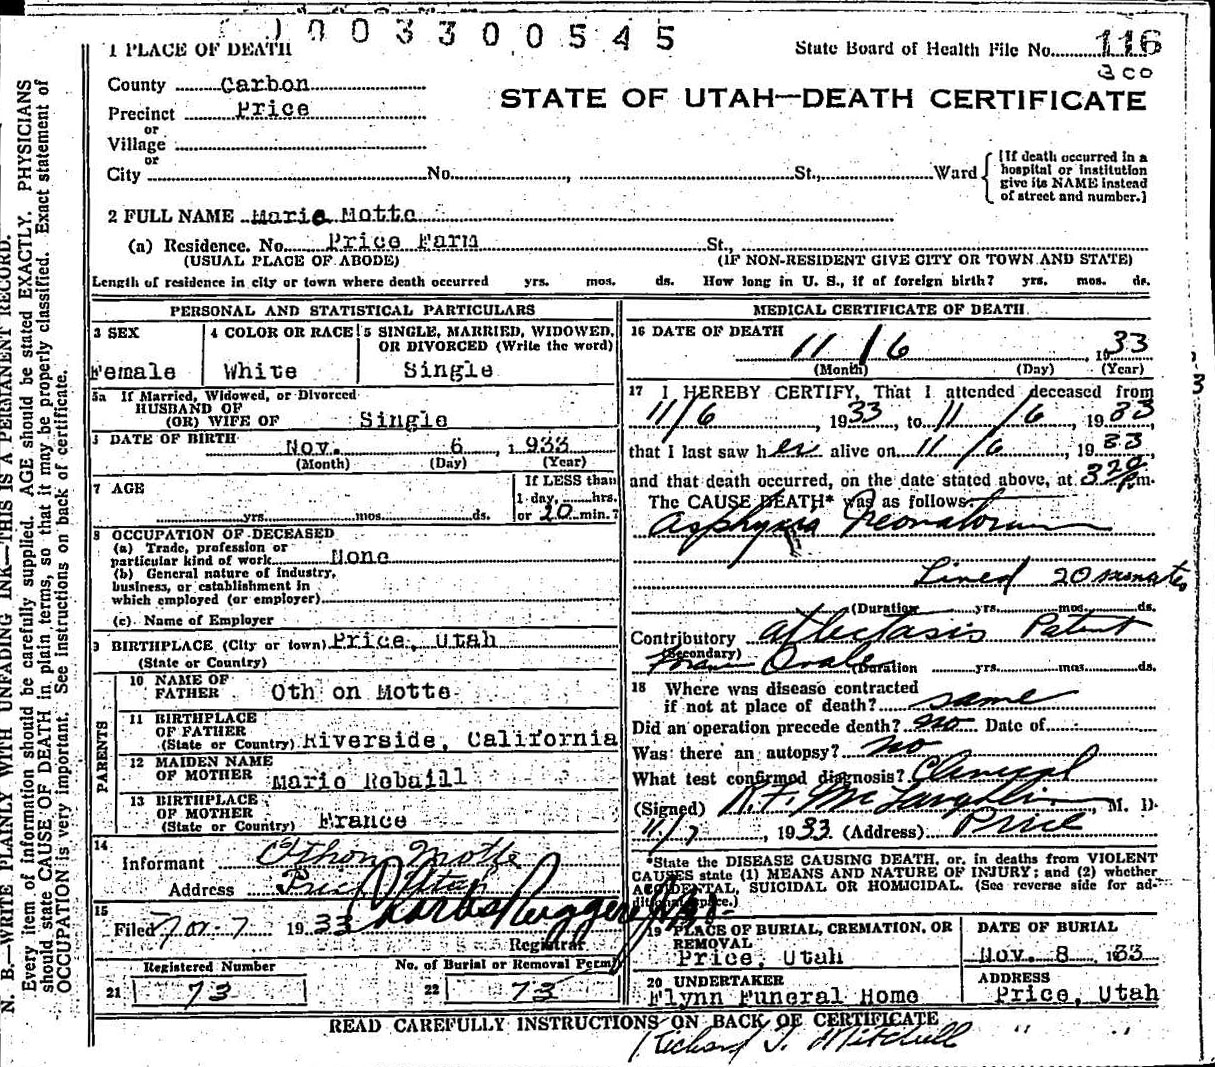 0 0 3 3 0 0 5 4 5
1 PLACE OF DEATH
State Board of Health File No. 116
300
County Carbon
STATE OF UTAH—DEATH CERTIFICATE
Precinct Price
or
Village
or
City No. , St., Ward
[If death occurred in a
hospital or institution
give its NAME instead
of street and number.]
2 FULL NAME Marie Motte
(a) Residence. No. Price Farm St.,
(USUAL PLACE OF ABODE) (IF NON-RESIDENT GIVE CITY OR TOWN AND STATE)
Length of residence in city or town where death occurred yrs. mos. ds. How long in U. S., if of foreign birth? yrs. mos. ds.
PERSONAL AND STATISTICAL PARTICULARS
3 SEX
Female
4 COLOR OR RACE
White
5 SINGLE, MARRIED, WIDOWED,
OR DIVORCED (Write the word)
Single
5a If Married, Widowed, or Divorced
HUSBAND OF
(OR) WIFE OF Single
DATE OF BIRTH
Nov. 6 , 1933
(Month) (Day) (Year)
7 AGE
yrs. mos. ds.
If LESS than
1 day, hrs.
or 20 min.?
8 OCCUPATION OF DECEASED
(a) Trade, profession or
particular kind of work None
(b) General nature of industry,
business, or establishment in
which employed (or employer)
(c) Name of Employer
9 BIRTHPLACE (City or town) Price, Utah
(State or Country)
PARENTS
10 NAME OF
FATHER Oth on Motte
11 BIRTHPLACE
OF FATHER
(State or Country) Riverside, California
12 MAIDEN NAME
OF MOTHER Marie Rebaill
13 BIRTHPLACE
OF MOTHER
(State or Country) France
14
Informant Othon Motte
Address Price Utah
15
Filed Nov-7 1933
Registrar
Registered Number
21 73
No. of Burial or Removal Permit
22 73
MEDICAL CERTIFICATE OF DEATH
16 DATE OF DEATH
11 / 6 , 1933
(Month) (Day) (Year)
17 I HEREBY CERTIFY, That I attended deceased from
11/6 , 1933, to 11/6 , 1933
that I last saw her alive on 11/6 , 1933
and that death occurred, on the date stated above, at 3 20 Pm.
The CAUSE DEATH* was as follows:
Asphyxia Neonatorum
Lived 20 minutes
(Duration yrs. mos. ds.
Contributory Atlectasis Patent
(Secondary)
Foramen Ovale (Duration yrs. mos. ds.
18 Where was disease contracted
if not at place of death? same
Did an operation precede death? no Date of
Was there an autopsy? no
What test confirmed diagnosis? Clinical
(Signed) R.F. McLaughlin, M. D.
11/7 , 1933 (Address) Price
*State the DISEASE CAUSING DEATH, or, in deaths from VIOLENT
CAUSES state (1) MEANS AND NATURE OF INJURY; and (2) whether
ACCIDENTAL, SUICIDAL OR HOMICIDAL. (See reverse side for ad-
ditional space.)
19 PLACE OF BURIAL, CREMATION, OR
REMOVAL
Price, Utah
DATE OF BURIAL
Nov. 8 1933
20 UNDERTAKER
Flynn Funeral Home
ADDRESS
Price, Utah
READ CAREFULLY INSTRUCTIONS ON BACK OF CERTIFICATE
Richard J. Mitchell " "
N. B.—WRITE PLAINLY WITH UNFADING INK—THIS IS A PERMANENT RECORD.
Every item of information should be carefully supplied. AGE should be stated EXACTLY. PHYSICIANS
should state CAUSE OF DEATH in plain terms, so that it may be properly classified. Exact statement of
OCCUPATION is very important. See instructions on back of certificate.
3